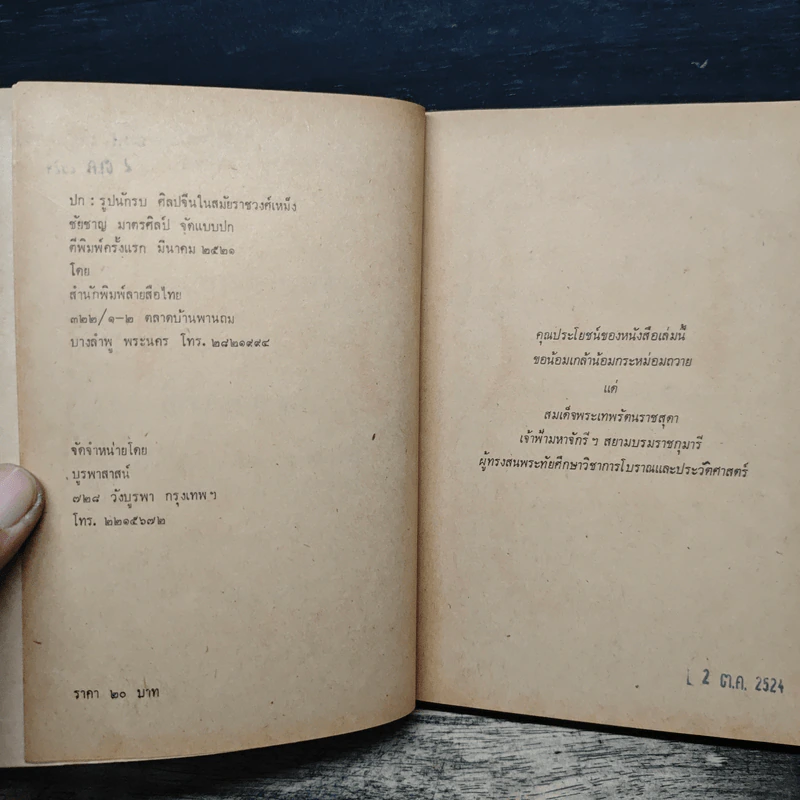 ปก : รูปนักรบ ศิลปจีนในสมัยราชวงศ์เหม็ง
ชัยชาญ มาตรศิลป์ จัดแบบปก
ตีพิมพ์ครั้งแรก มีนาคม ๒๕๒๑
โดย
สำนักพิมพ์ลายสือไทย
๓๒๒/๑-๒ ตลาดบ้านพานถม
บางลำพู พระนคร โทร. ๒๘๒๑๙๙๔
จัดจำหน่ายโดย
บูรพาสาสน์
๗๒๘ วังบูรพา กรุงเทพฯ
โทร. ๒๒๑๕๖๗๒
ราคา ๒๐ บาท
คุณประโยชน์ของหนังสือเล่มนี้
ขอน้อมเกล้าน้อมกระหม่อมถวาย
แด่
สมเด็จพระเทพรัตนราชสุดา
เจ้าฟ้ามหาจักรีฯ สยามบรมราชกุมารี
ผู้ทรงสนพระทัยศึกษาวิชาการโบราณและประวัติศาสตร์
2 ต.ค. 2524